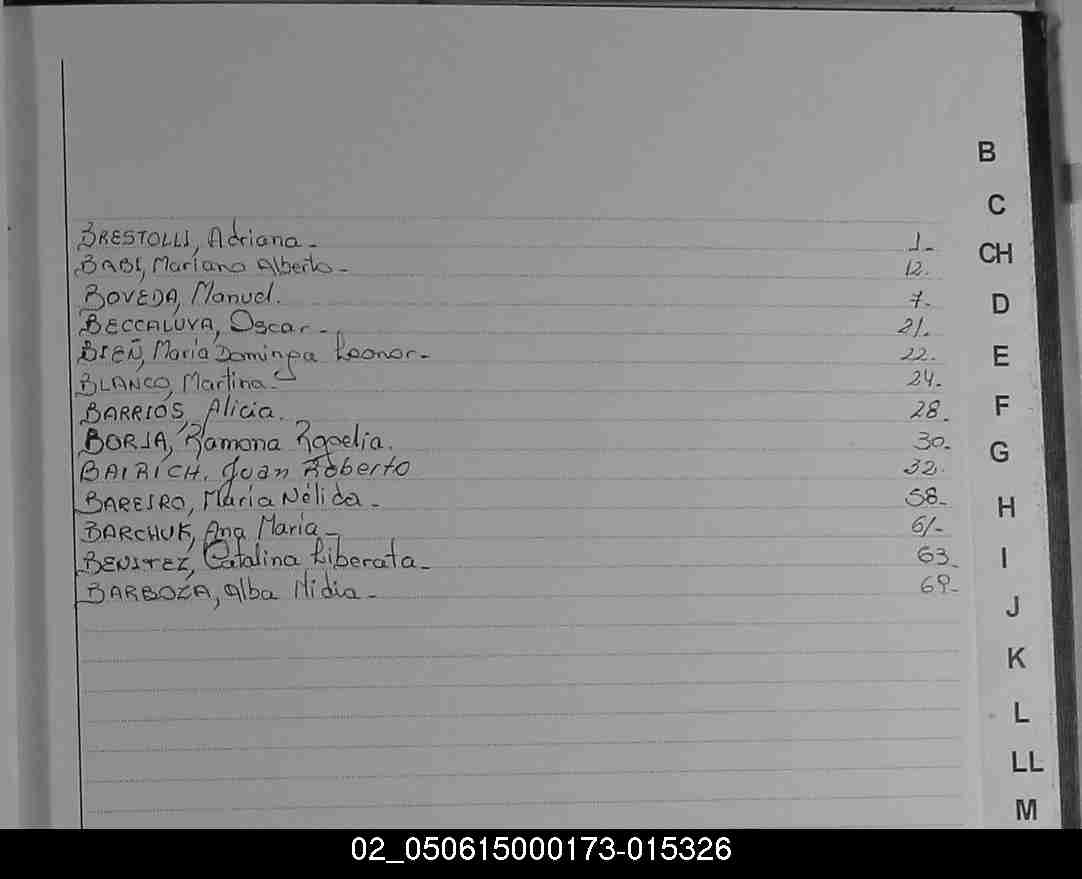 B
C
CH
D
E
F
G
H
I
J
K
L
LL
M
BRESTOLLI, Adriana - 1-
BABI, Mariano Alberto - 12.
BOVEDA, Manuel. 7-
BECCALUVA, Oscar - 21.
BIEÑ, María Dominga Leonor - 22.
BLANCO, Martina - 24.
BARRIOS, Alicia. 28.
BORJA, Ramona Rogelia. 30-
BAIRICH, Juan Roberto 32.
BAREIRO, María Nélida - 58-
BARCHUK, Ana María - 61-
BENITEZ, Catalina Liberata - 63-
BARBOZA, Alba Nidia - 69-
02_050615000173-015326